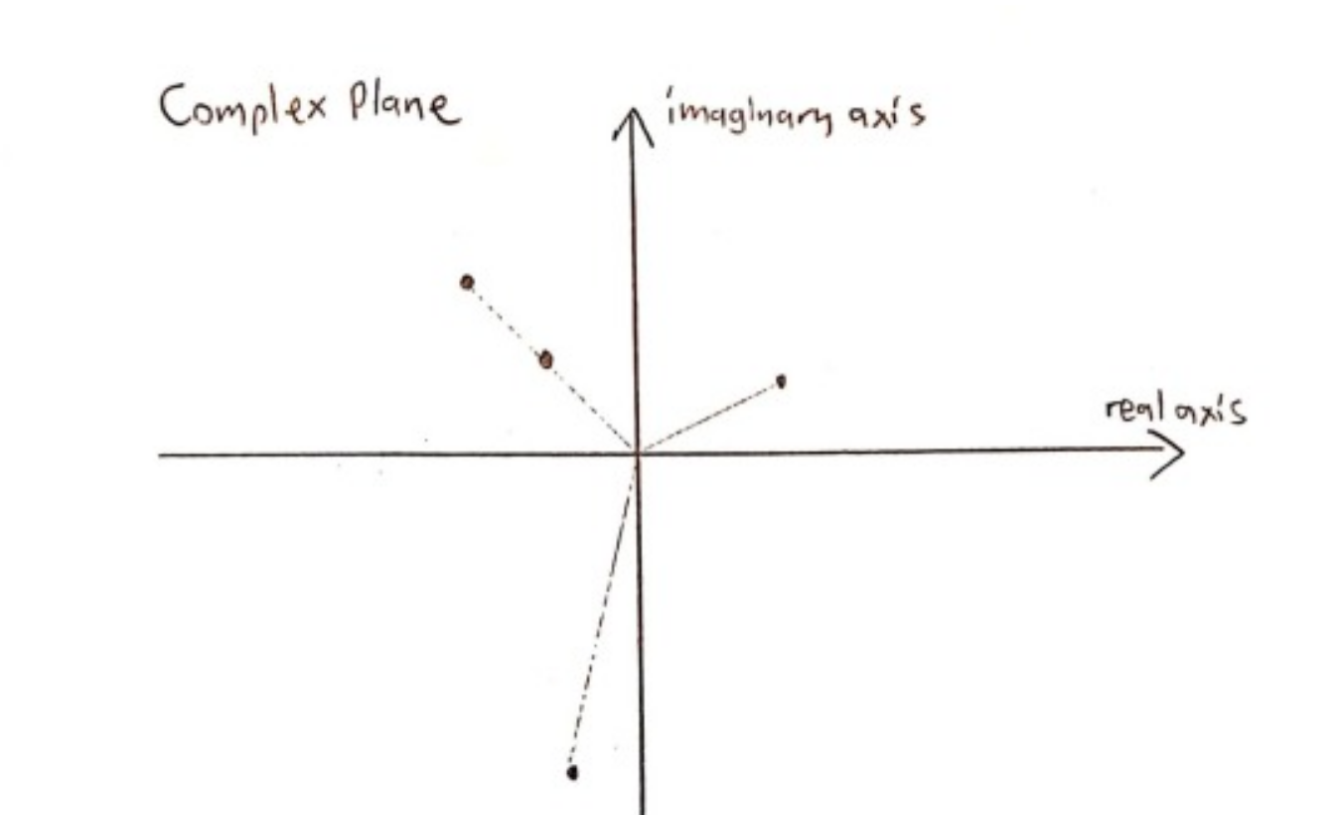 Complex Plane
imaginary axis
real axis